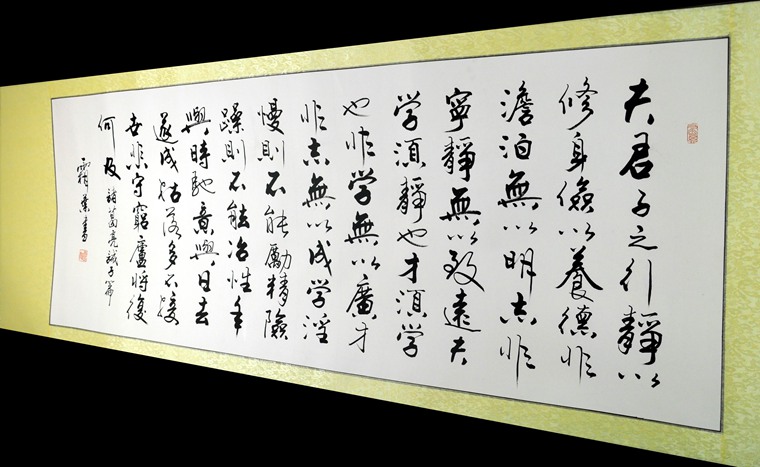 夫君子之行靜以
修身儉以養德非
澹泊無以明志非
寧靜無以致遠夫
学須靜也才須学
也非学無以廣才
非志無以成学淫
慢則不能勵精險
躁則不能冶性年
與時馳意與日去
遂成枯落多不接
世非守窮廬將復
何及 諸葛亮誡子篇
霜葉書